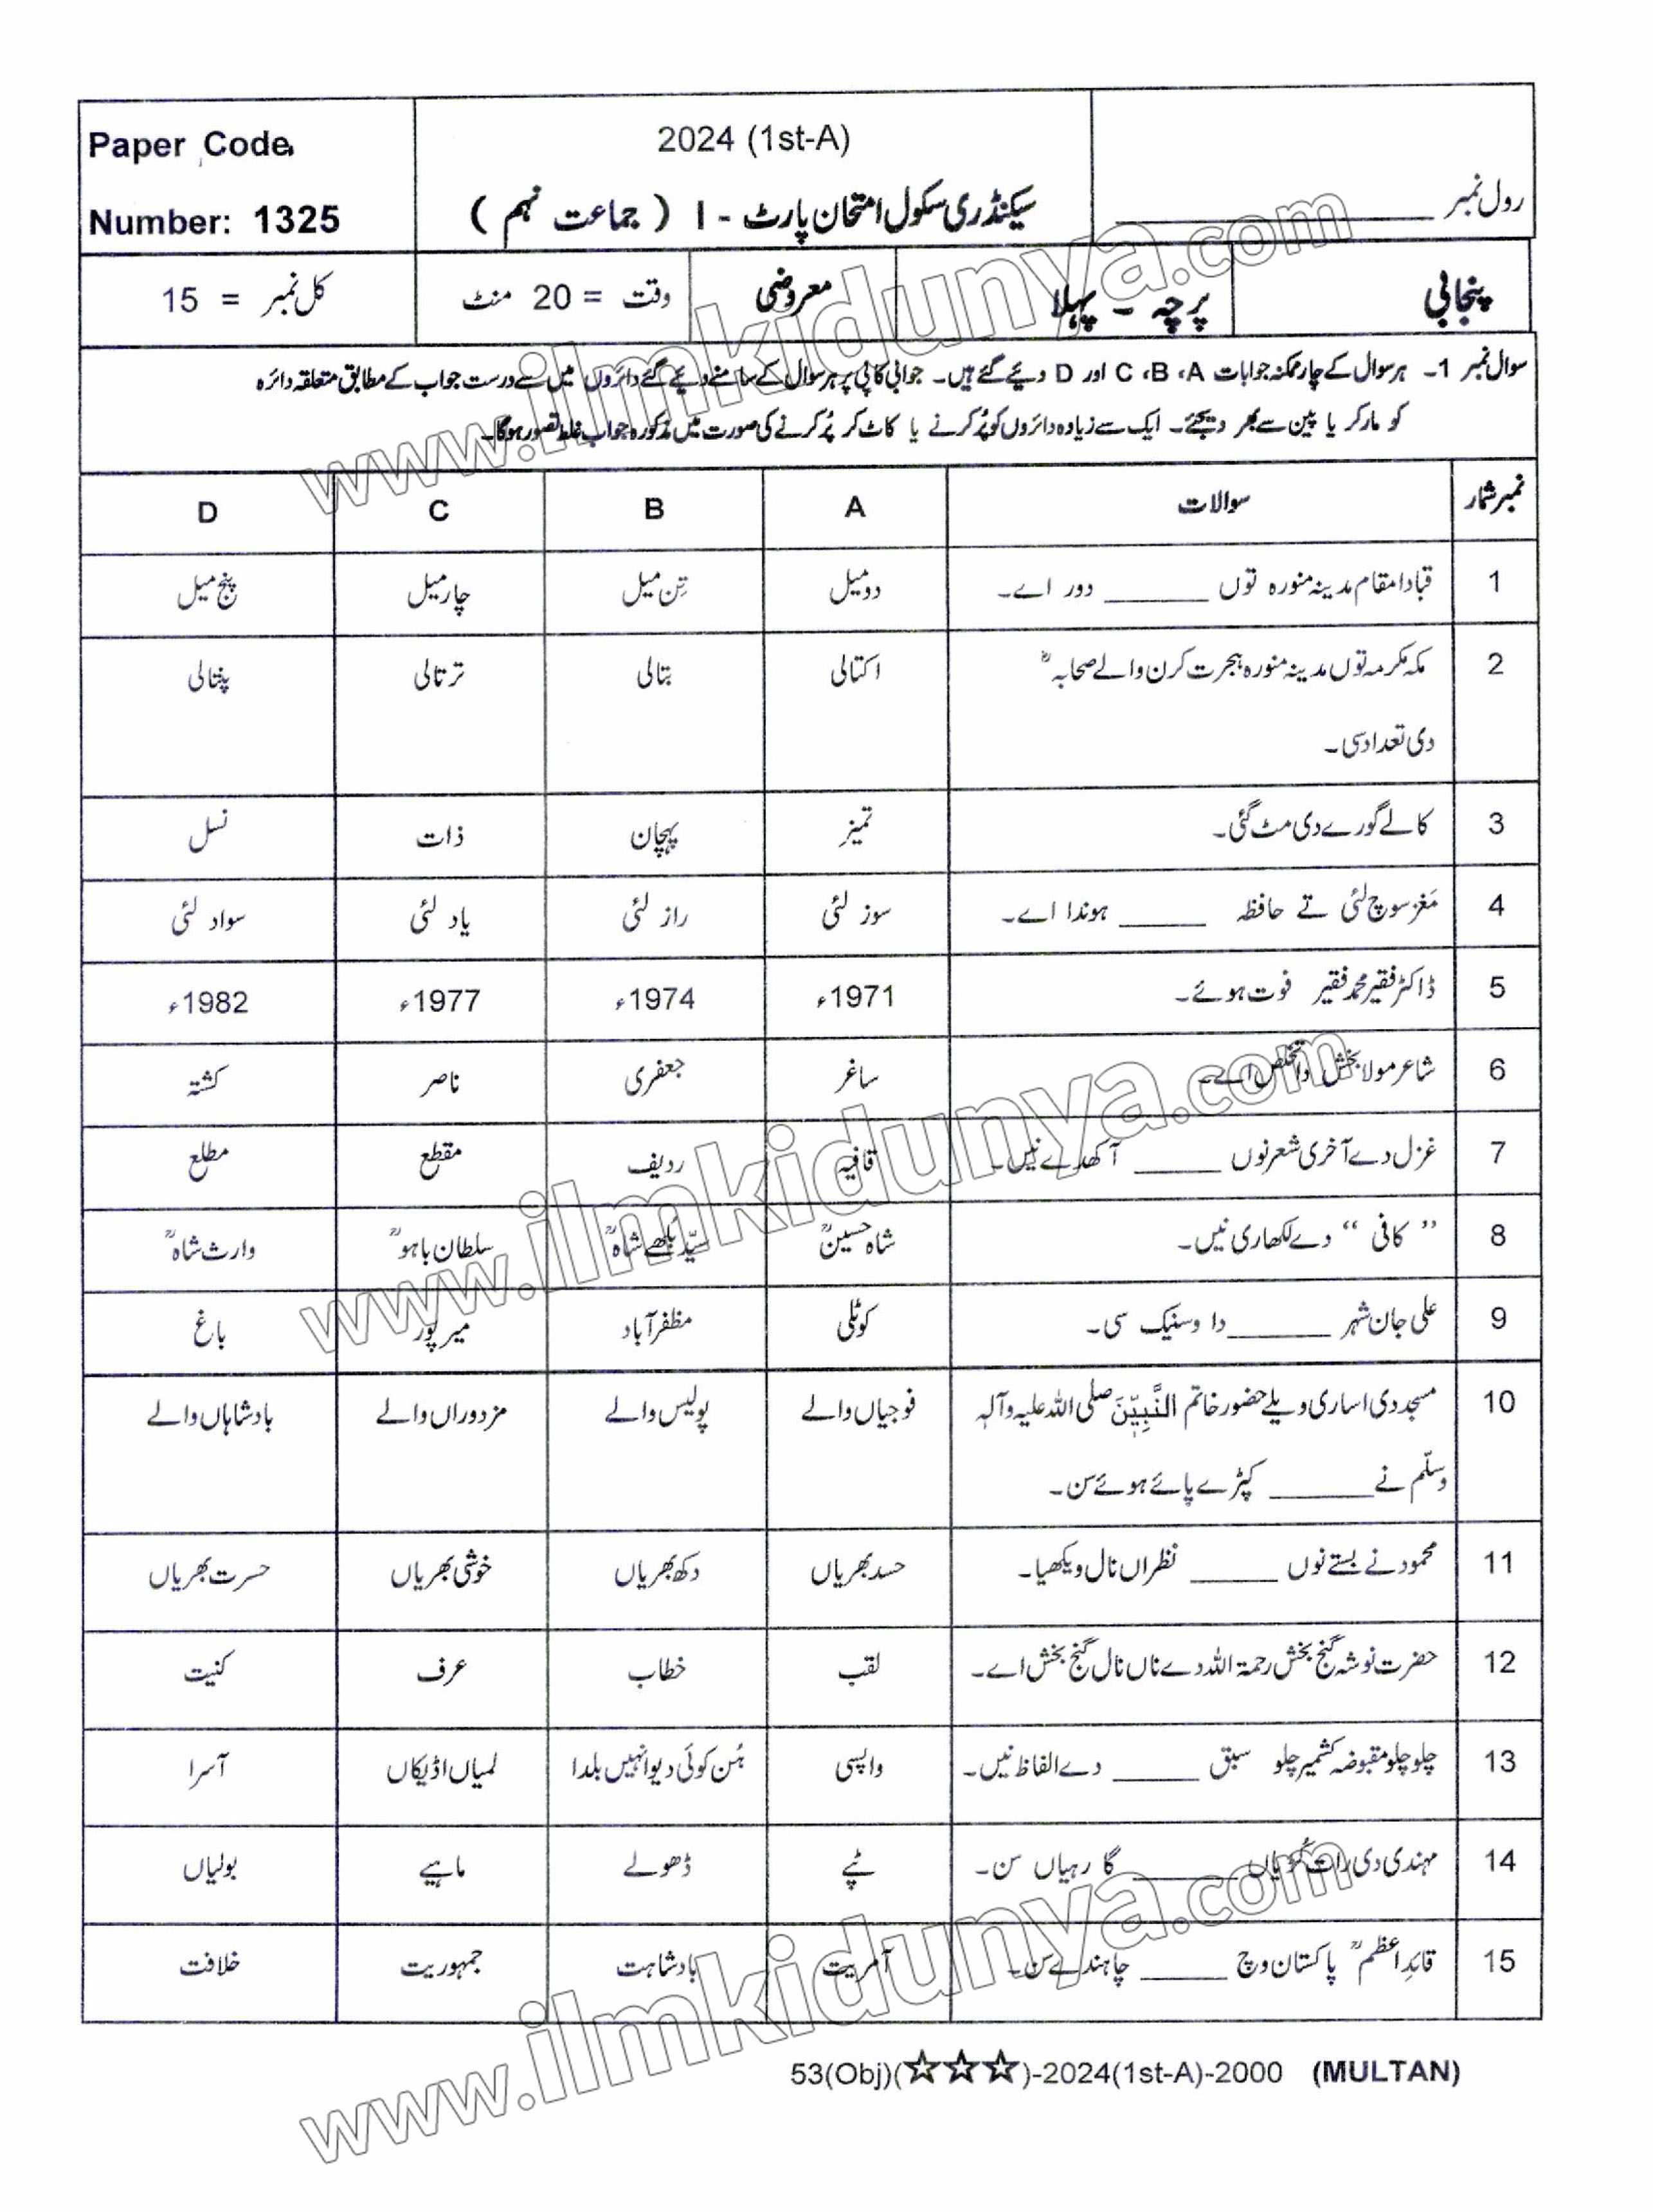 Paper Code
Number: 1325
2024 (1st-A)
سیکنڈری سکول امتحان پارٹ - I ( جماعت نہم )
رول نمبر
پنجابی
پرچہ - پہلا
معروضی
وقت = 20 منٹ
کل نمبر = 15
سوال نمبر 1۔ ہر سوال کے چار ممکنہ جوابات A، B، C اور D دیئے گئے ہیں۔ جوابی کاپی پر ہر سوال کے سامنے دیئے گئے دائروں میں سے درست جواب کے مطابق متعلقہ دائرہ
کو مارکر یا پین سے بھر دیجئے۔ ایک سے زیادہ دائروں کو پُر کرنے یا کاٹ کر پُر کرنے کی صورت میں مذکورہ جواب غلط تصور ہوگا۔
نمبر شمار سوالات A B C D
1 قبا دا مقام مدینہ منورہ توں ______ دور اے۔ دو میل تِن میل چار میل پنج میل
2 مکہ مکرمہ توں مدینہ منورہ ہجرت کرن والے صحابہؓ اکتالی بتالی ترتالی پنتالی
دی تعداد سی۔
3 کالے گورے دی مٹ گئی۔ تمیز پہچان ذات نسل
4 مَغز سوچ لئی تے حافظہ ______ ہوندا اے۔ سوز لئی راز لئی یاد لئی سواد لئی
5 ڈاکٹر فقیر محمد فقیر فوت ہوئے۔ 1971ء 1974ء 1977ء 1982ء
6 شاعر مولا بخش دا تخلص اے۔ ساغر جعفری ناصر کشتہ
7 غزل دے آخری شعر نوں ______ آکھدے نیں۔ قافیہ ردیف مقطع مطلع
8 ”کافی“ دے لکھاری نیں۔ شاہ حسینؒ سیّد بُلھے شاہؒ سلطان باہوؒ وارث شاہؒ
9 علی جان شہر ______ دا وسنیک سی۔ کوٹلی مظفر آباد میر پور باغ
10 مسجد دی اساری ویلے حضور خاتم النَّبِیّٖنَ صلی اللہ علیہ وآلہٖ فوجیاں والے پولیس والے مزدوراں والے بادشاہاں والے
وسلّم نے ______ کپڑے پائے ہوئے سن۔
11 محمود نے بستے نوں ______ نظراں نال ویکھیا۔ حسد بھریاں دکھ بھریاں خوشی بھریاں حسرت بھریاں
12 حضرت نوشہ گنج بخش رحمۃ اللہ دے ناں نال گنج بخش اے۔ لقب خطاب عرف کنیت
13 چلو چلو مقبوضہ کشمیر چلو سبق ______ دے الفاظ نیں۔ واپسی ہُن کوئی دیوا نہیں بلدا لمیاں اڈیکاں آسرا
14 مہندی دی رات کُڑیاں ______ گا رہیاں سن۔ ٹپے ڈھولے ماہیے بولیاں
15 قائدِ اعظمؒ پاکستان وچ ______ چاہندے سن۔ آمریت بادشاہت جمہوریت خلافت
53(Obj)(☆☆☆)-2024(1st-A)-2000 (MULTAN)
www.ilmkidunya.com
www.ilmkidunya.com
www.ilmkidunya.com